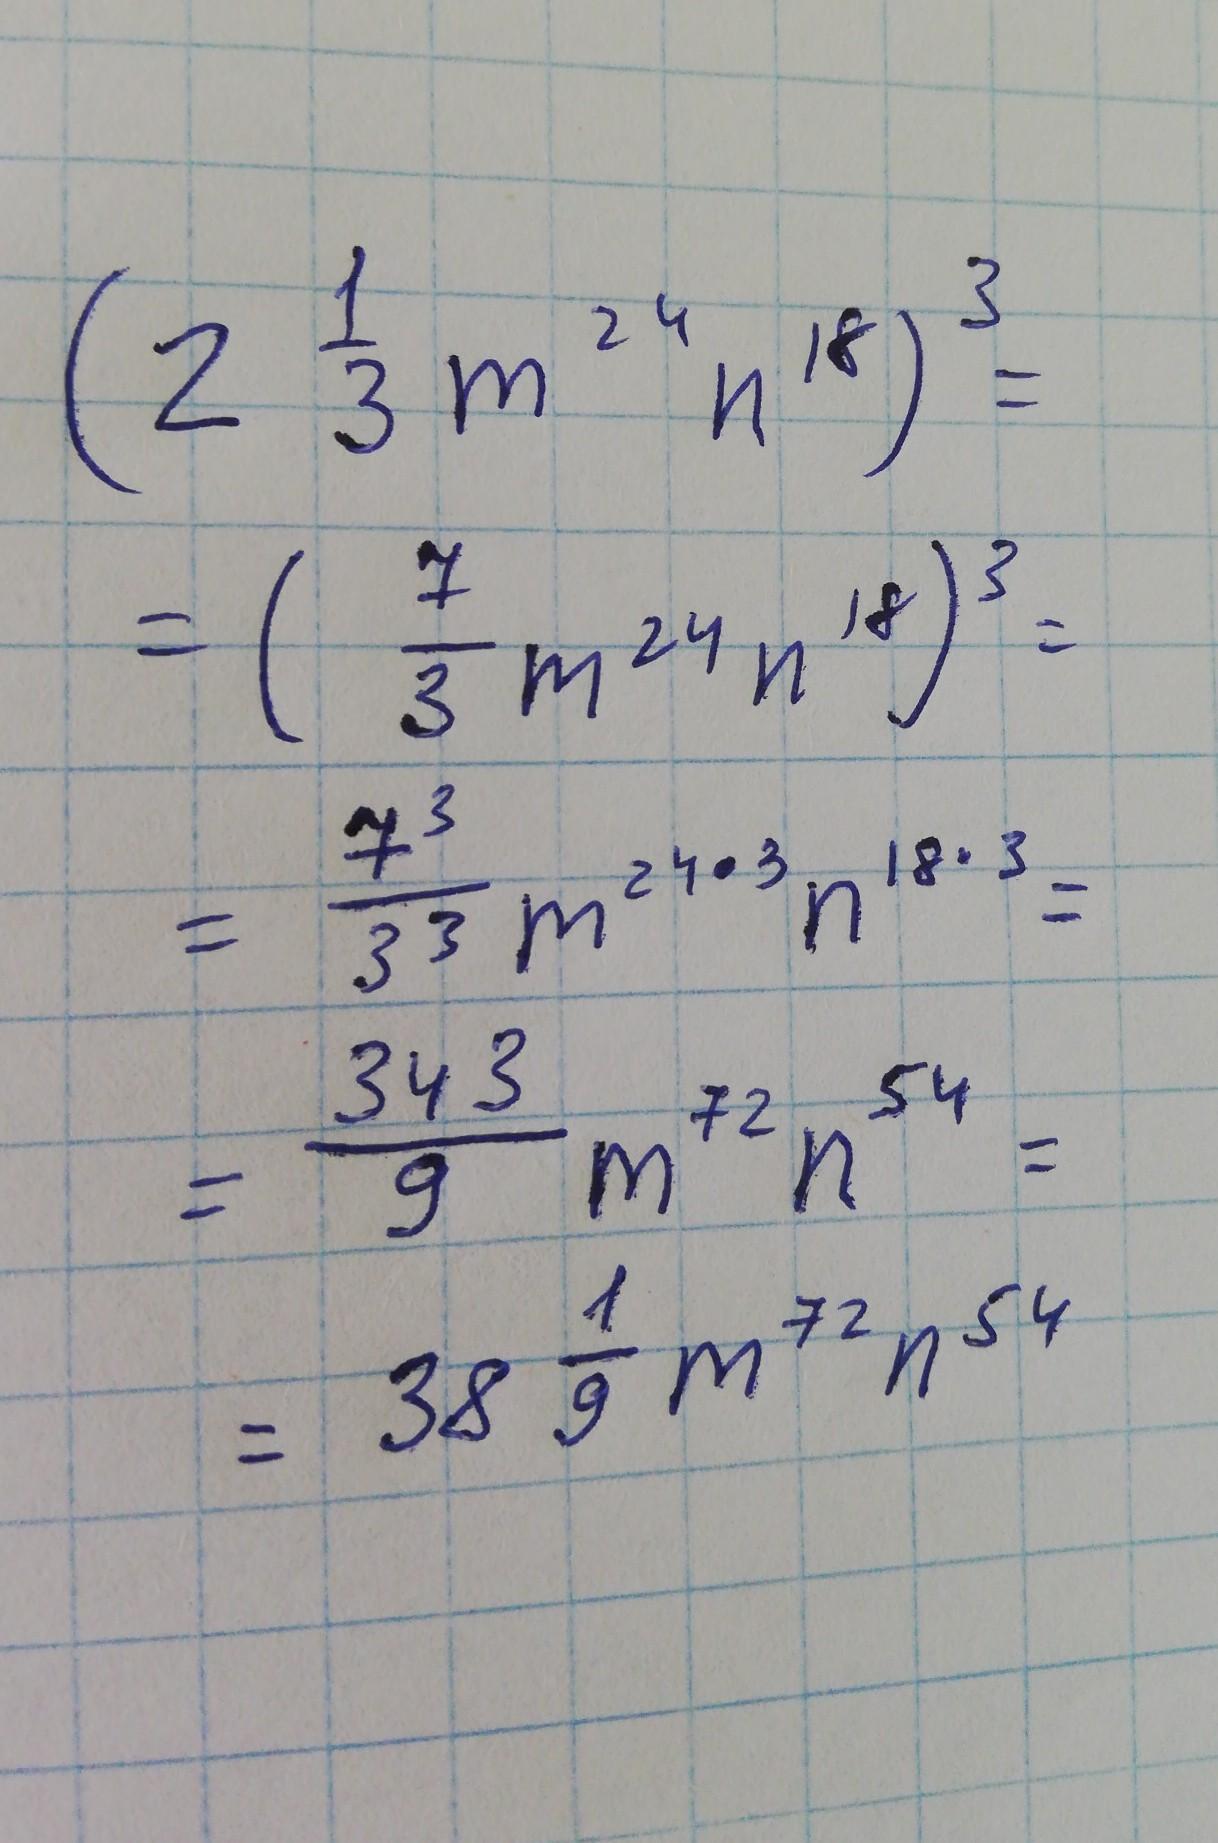 (2 1/3 m^24 n^18)^3 =
= (7/3 m^24 n^18)^3 =
= 7^3/3^3 m^24·3 n^18·3 =
= 343/9 m^72 n^54 =
= 38 1/9 m^72 n^54